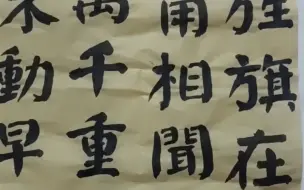 旌旗在
角相聞
萬千重
不動早